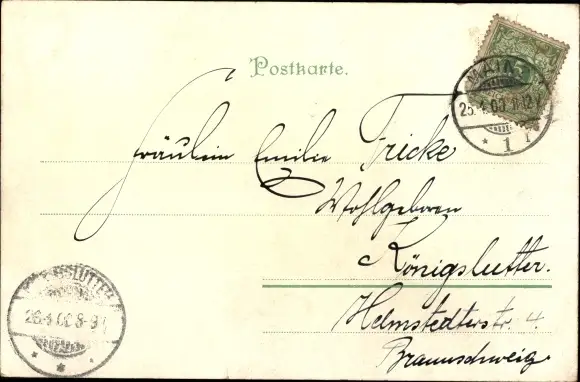 Postkarte.
5
MAINZ
25.4.00 11-12 V
* 1 *
Fräulein Emilie Fricke
Wohlgeboren
Königslutter.
Helmstedterstr. 4.
Braunschweig.
26.4.00 8-9V
* * *